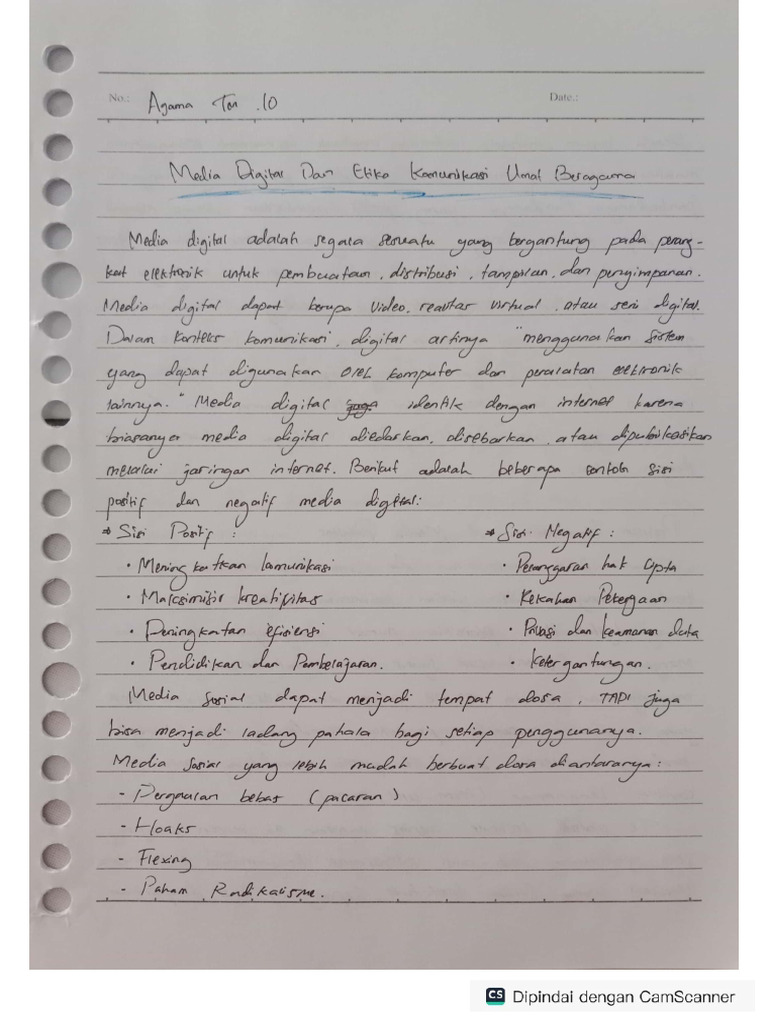 No.: Agama Ton .10 Date.:
Media Digital Dan Etika Komunikasi Umat Beragama
Media digital adalah segala sesuatu yang bergantung pada perang-
kat elektronik untuk pembuatan, distribusi, tampilan, dan penyimpanan.
Media digital dapat berupa Video, realitas virtual, atau seni digital.
Dalam konteks komunikasi, digital artinya "menggunakan sistem
yang dapat digunakan oleh komputer dan peralatan elektronik
lainnya." Media digital identik dengan internet karena
biasanya media digital diedarkan, disebarkan, atau dipublikasikan
melalui jaringan internet. Berikut adalah beberapa contoh sisi
positif dan negatif media digital:
Sisi Positif : Sisi Negatif :
• Meningkatkan komunikasi • Pelanggaran hak cipta
• Maksimisir kreatifitas • Kekahan Pekerjaan
• Peningkatan efisiensi • Privasi dan keamanan data
• Pendidikan dan Pembelajaran. • Ketergantungan.
Media sosial dapat menjadi tempat dosa, TAPI juga
bisa menjadi ladang pahala bagi setiap penggunanya.
Media sosial yang lebih mudah berbuat dosa diantaranya :
- Pergaulan bebas (pacaran)
- Hoaks
- Flexing
- Paham Radikalisme.
CS Dipindai dengan CamScanner